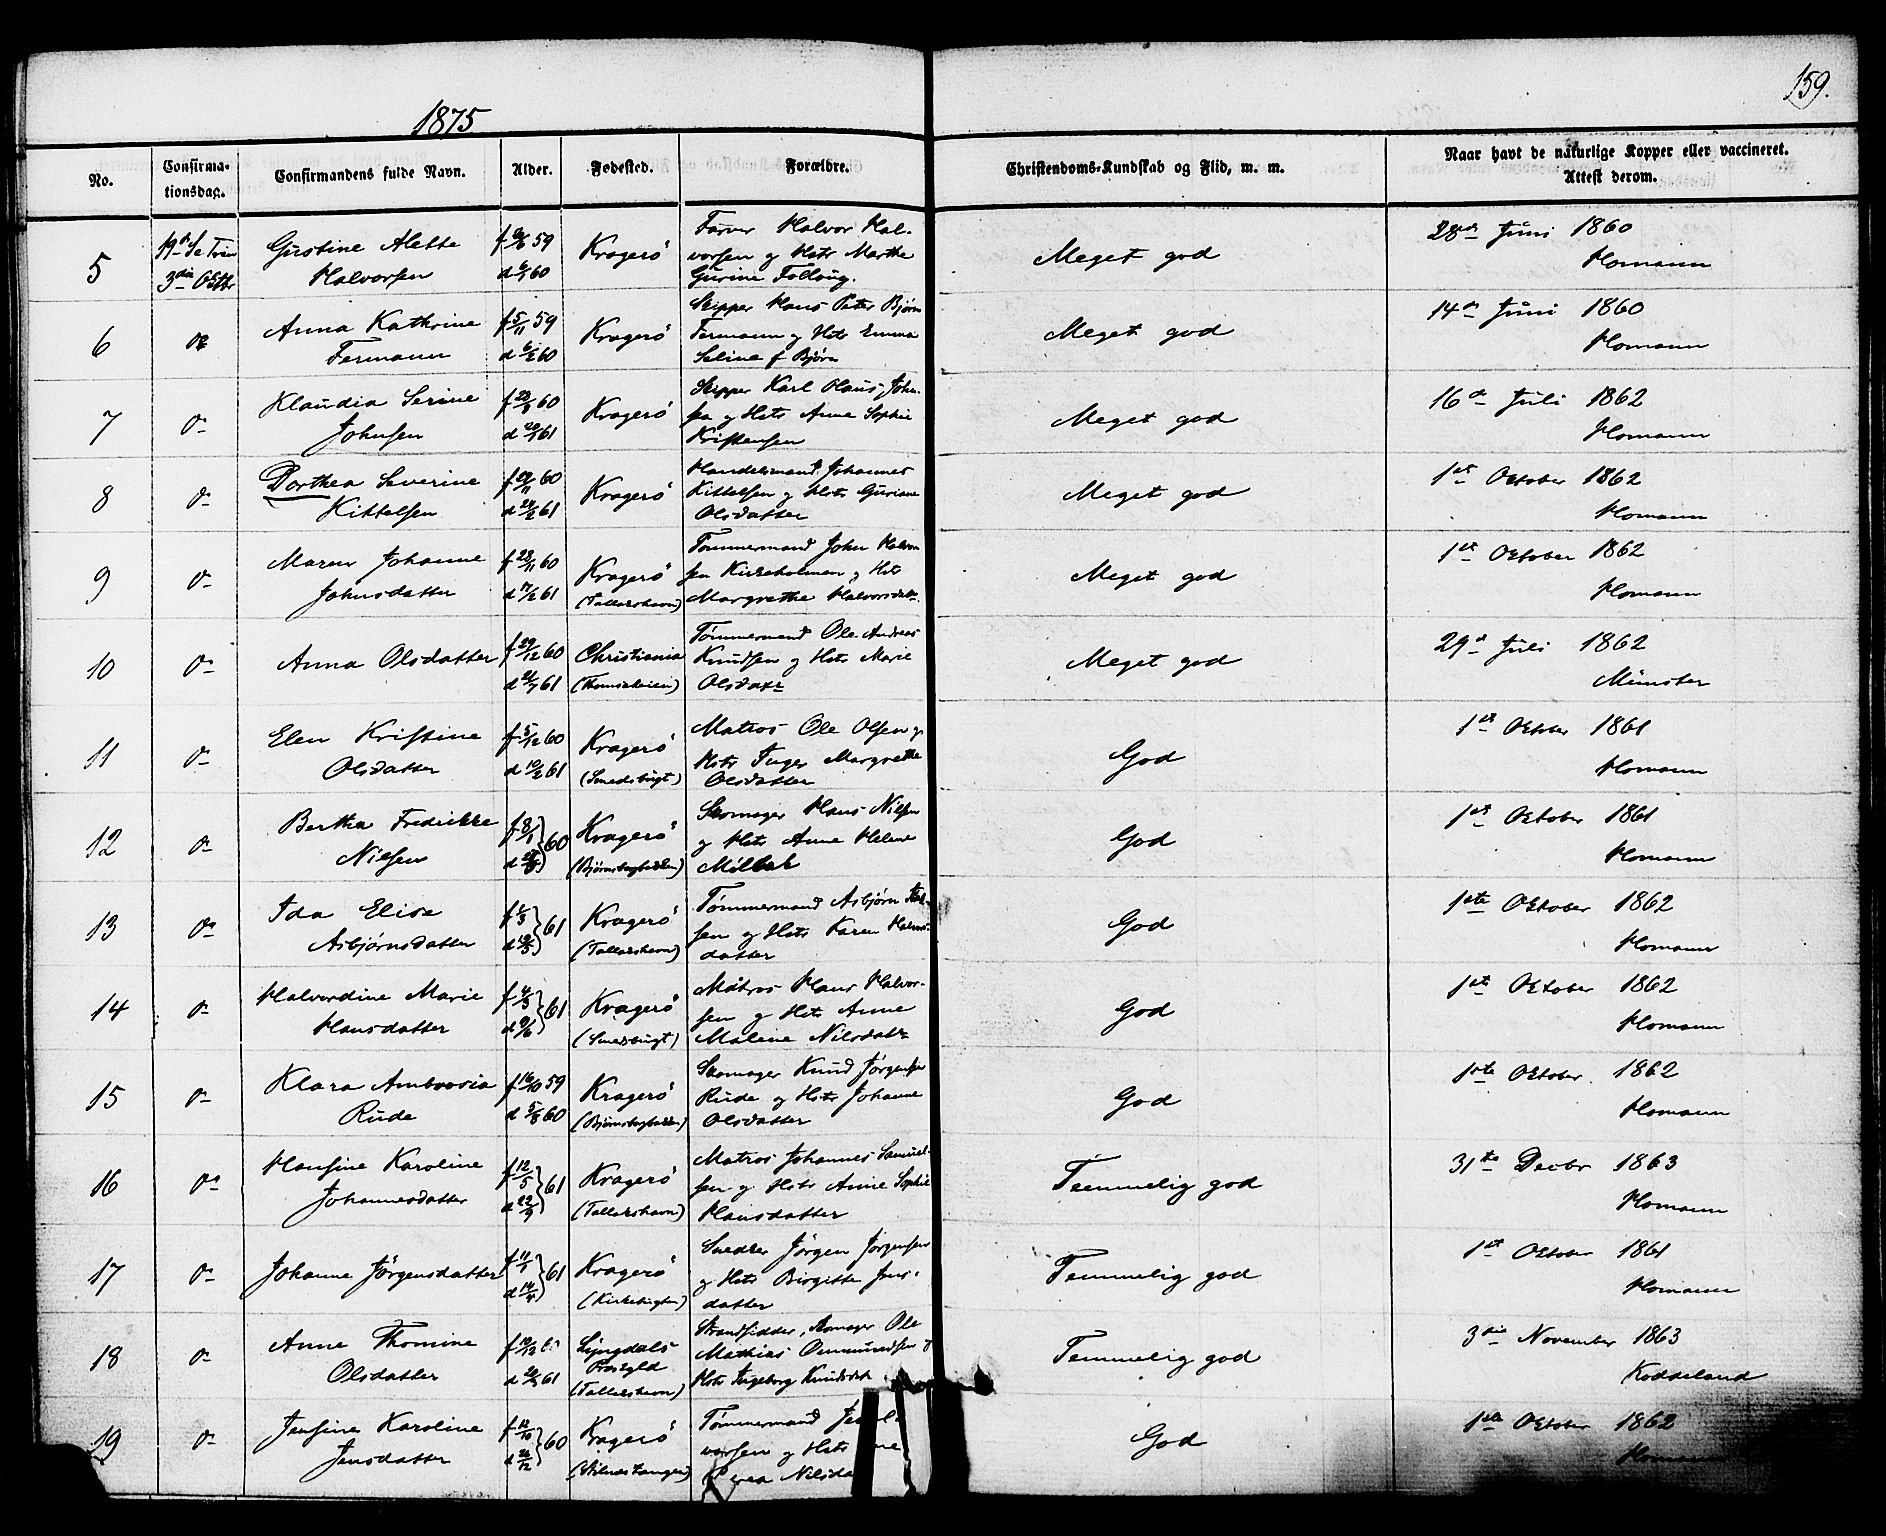 159.
1875
No.
Confirma-
tionsdag.
Confirmandens fulde Navn.
Alder.
Fødested.
Forældre.
Christendoms-Kundskab og Flid, m. m.
Naar havt de naturlige Kopper eller vaccineret.
Attest derom.
5
Gustine Alette
Halvorsen
59
60
Kragerö
Farver Halvor Hal-
vorsen og Hstr Marthe
Gurine
Meget god
28 Juni 1860
Homann
6
Anna Kathrine
Fermann
f 5/11 59
d 6/2 60
Kragerö
Skipper Hans Peter Bjørn
Fermann og Hstr Emma
Seline f Bjørn
Meget god
14 Juni 1860
Homann
7
Klaudia Serine
Johnsen
60
61
Kragerö
Skipper Karl Claus John-
sen og Hstr Anne Sophie
Kristensen
Meget god
16 Juli 1862
Homann
8
Dorthea Severine
Kittelsen
60
61
Kragerö
Handelsmand Johannes
Kittelsen og Hstr Guriane
Olsdatter
Meget god
1ste October 1862
Homann
9
Maren Johanne
Johnsdatter
f 28/11 60
d 17/2 61
Kragerö
(Tallakshavn)
Tømmermand John Halvor
sen Kirkeholmen og Hstr
Margrethe Halvorsdatr
Meget god
1ste October 1862
Homann
10
Anna Olsdatter
f 29/12 60
d 61
Christiania
Tømmermand Ole Andreas
Knudsen og Hstr Marie
Olsdatr
Meget god
29 Juli 1862
Münster
11
Elen Kristine
Olsdatter
f 5/12 60
d 10/2 61
Kragerö
(Smedsbugt)
Matros Ole Olsen og
Hstr Inger Margrethe
Olsdatter
God
1ste October 1861
Homann
12
Bertha Fredrikke
Nilsen
f 8/1
60
Kragerö
Skomager Hans Nilsen
og Hstr Anne Helene
God
1ste October 1861
Homann
13
Ida Elise
Asbjørnsdatter
61
Kragerö
(Tallakshavn)
Tømmermand Asbjørn
sen og Hstr Karen Halvors-
datter
God
1ste October 1862
Homann
14
Halvordine Marie
Hansdatter
61
Kragerö
(Smedsbugt)
Matros Hans Halvor-
sen og Hstr Anne
Malene Nilsdatr
God
1ste October 1862
Homann
15
Klara Ambrosia
Rude
f 16/10 59
60
Kragerö
Skomager Knud Jørgensen
Rude og Hstr Johanne
Olsdatter
God
1ste October 1862
Homann
16
Hansine Karoline
Johannesdatter
f 12/5
d 22/9
61
Kragerö
(Tallakshavn)
Matros Johannes Samuel-
sen og Hstr Anne Sophie
Hansdatter
Temmelig god
31te Decbr 1863
Homann
17
Johanne Jørgensdatter
61
Kragerö
(Kirkebugten)
Snedker Jørgen Jørgensen
og Hstr Birgitte Jens-
datter
Temmelig god
1ste October 1861
Homann
18
Anne Thomine
Olsdatter
61
Lyngdals
Præstgld
(Tallakshavn)
Strandsidder, Skomager Ole
Mathias Ommundsen og
Hstr Ingeborg Knudsdtr
Temmelig god
3die November 1863
Koddeland
19
Jensine Karoline
Jensdatter
60
Kragerö
Tømmermand
vorsen og Hstr
Nilsda
God
1ste October 1862
Homann